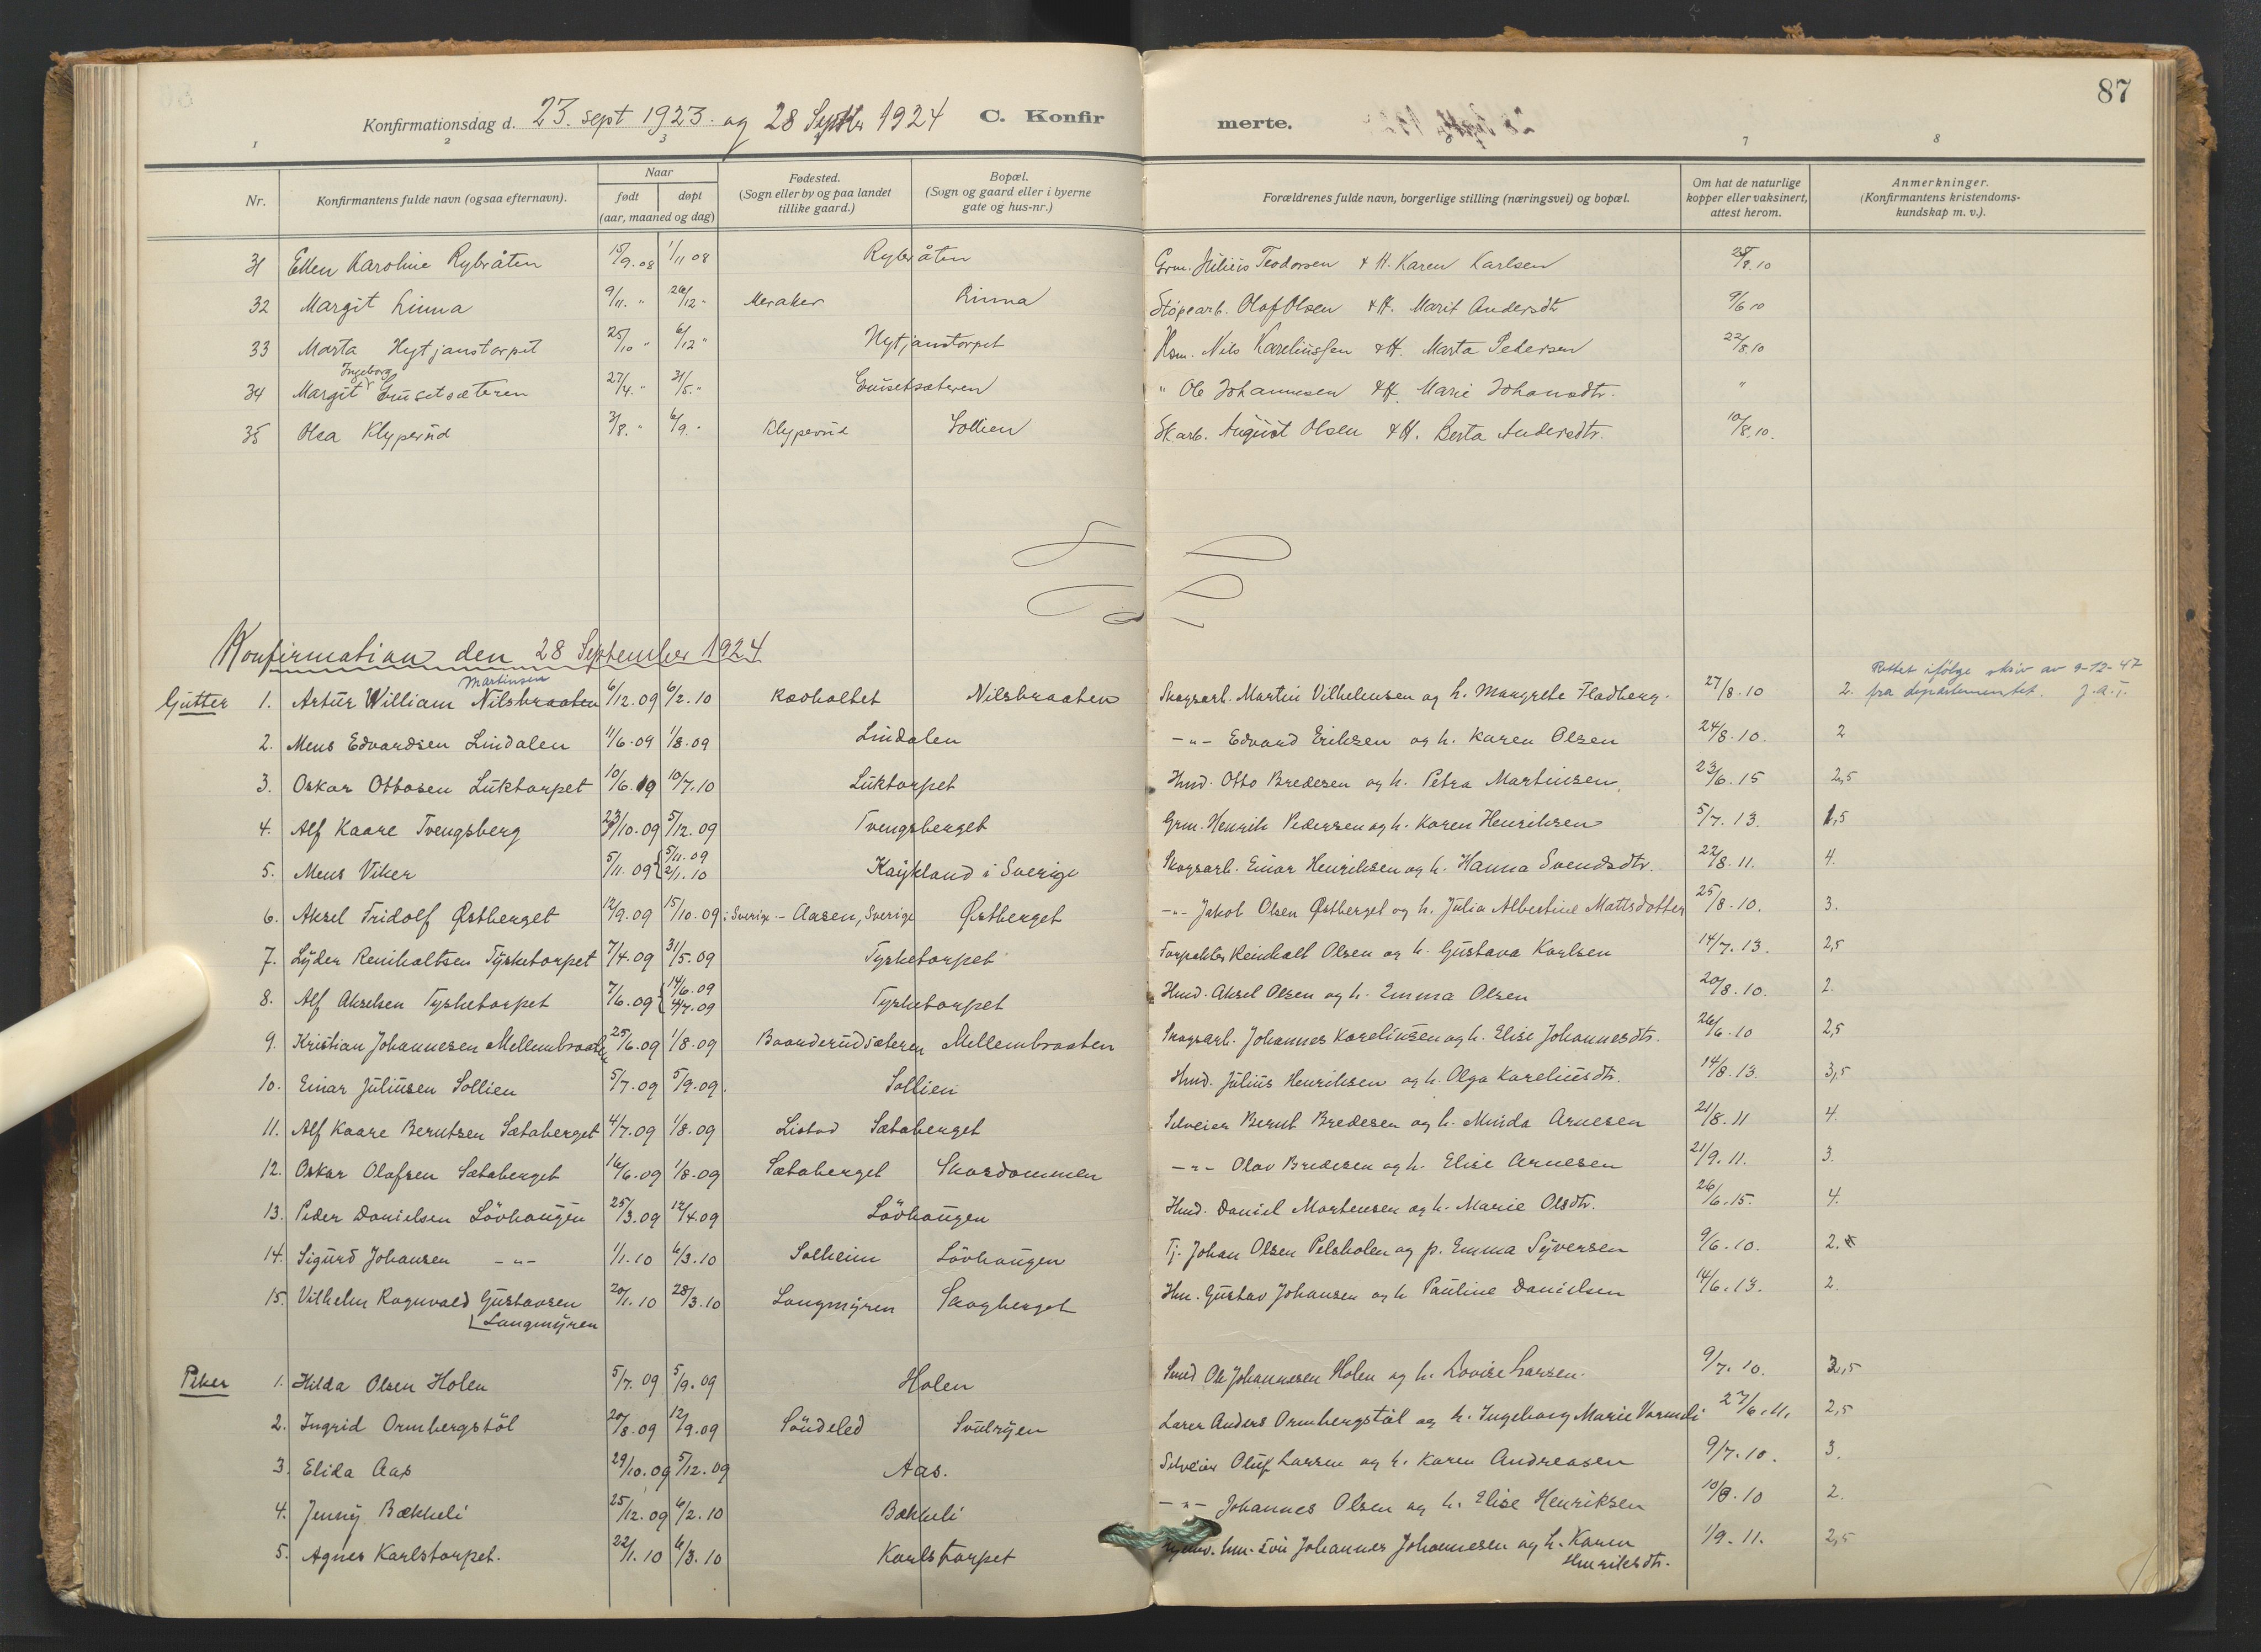 87
Konfirmationsdag d. 23. sept 1923. og 28 Septbr 1924 C. Konfir merte.
1 2 3 7 8
Nr. Konfirmantens fulde navn (ogsaa efternavn). Naar født døpt (aar, maaned og dag) Fødested. (Sogn eller by og paa landet tillike gaard.) Bopæl. (Sogn og gaard eller i byerne gate og hus-nr.) Forældrenes fulde navn, borgerlige stilling (næringsvei) og bopæl. Om hat de naturlige kopper eller vaksinert, attest herom. Anmerkninger. (Konfirmantens kristendoms-kundskap m. v.).
31 Ellen Karoline Rybråten 15/9.08 1/11 08 Rybråten Grm. Julius Teodorsen & H. Karen Karlsen 25/8.10
32 Margit Linna 9/11. " 26/12 " Meraker Linna Olaf Olsen & H. Marit Andersdtr 9/6 10
33 Marta Hytjanstorpet 25/10 " 6/12 " Hytjanstorpet Hsm. Nils Kareliussen & H. Marta Pedersen 22/8.10
34 Margit Ingeborg Gruset­sæteren 27/4. " 31/5. " Grusetsæteren " Ole Johannesen & H. Marie Johansdtr. "
35 Olea Klyperud 3/8. " 6/9. " Klyperud Sollien Sk.arb. August Olsen & H. Berta Andersdtr. 10/8.10.
Konfirmation den 28 September 1924
Rettet ifølge skriv av 9-12-47
Gutter 1. Artur William Martinsen Nilsbraaten 6/12.09 6/2.10 Kovholtet Nilsbraaten Skogsarb. Martin Vilhelmsen og h. Margrete Fladberg. 27/8.10 2. fra departementet. J.A.T.
2. Mens Edvardsen Lindalen 11/6.09 1/8.09 Lindalen -"- Edvard Eriksen og h. Karen Olsen 24/8.10. 2
3. Oskar Ottosen Luktorpet 10/6.09 10/7.10 Luktorpet Hmd. Otto Bredesen og h. Petra Martinsen 23/6.15 2,5
4. Alf Kaare Tvengsberg 23/10.09 5/12.09 Tvengsberget Grm. Henrik Pedersen og h. Karen Henriksen 5/7.13. 1,5
5. Mens Viker 5/11.09 { 5/11.09 2/1.10 i Sverige Skogsarb. Einar Henriksen og h. Hanna Svendsdtr. 22/8.11. 4.
6. Aksel Fridolf Østberget 12/9.09 15/10.09 i Sverige - Aasen, Sverige Østberget -"- Jakob Olsen Østberget og h. Julia Albertine Mattsdotter 25/8.10. 3.
7. Lyder Reinholtsen Tysketorpet 7/4.09 31/5.09 Tysketorpet Forpakter Reinholt Olsen og h. Gustava Karlsen 14/7.13. 2,5
8. Alf Akselsen Tysketorpet 7/6.09 { 14/6.09 4/7.09 Tysketorpet Hmd. Aksel Olsen og h. Emma Olsen 20/8.10. 2.
9. Kristian Johannesen Mellembraaten 25/6.09 1/8.09 Baanderudsæteren Mellembraaten Skogsarb. Johannes Kareliusen og h. Elise Johannesdtr. 26/6.10 2,5
10. Einar Juliusen Sollien 5/7.09 5/9.09. Sollien Hmd. Julius Henriksen og h. Olga Kareliusdtr. 14/8.13. 3,5
11. Alf Kaare Berntsen Sætaberget 4/7.09 1/8.09 Listad Sætaberget Selveier Bernt Bredesen og h. Minda Arnesen 21/8.11 4.
12. Oskar Olafsen Sætaberget 16/6.09 1/8.09 Sætaberget Skasdammen -"- Olav Bredesen og h. Elise Arnesen 21/9.11. 3.
13. Peder Danielsen Lövhaugen 25/3.09 12/4.09 Lövhaugen Hmd. Daniel Mortensen og h. Marie Olsdtr. 26/6.15. 4.
14. Sigurd Johansen -"- 1/1.10 6/3.10 Solheim Lövhaugen Tj. Johan Olsen Pelsholen og p. Emma Syversen 9/6.10. 2.
15. Vilhelm Ragnvald Gustavsen 20/1.10 28/3.10 Langmyren Skogberget Hm. Gustav Johansen og h Pauline Danielsen 14/6.13. 2.
Langmyren
Piker 1. Hilda Olsen Holen 5/7.09 5/9.09 Holen Smed Ole Johannesen Holen og h. Lovise Larsen. 9/7.10. 2,5
2. Ingrid Ormbergstöl 20/8.09 12/9.09 Söndeled Svulryen Lærer Anders Ormbergstöl og h. Ingeborg Marie Varmeli 27/6.11. 2,5
3. Elida Aas 29/10.09 5/12.09 Aas. Selveier Oluf Larsen og h. Karen Andreasen 9/7.10. 3.
4. Jenny Bækkeli 25/12.09 6/2.10 Bækkeli -"- Johannes Olsen og h. Elise Henriksen 10/8.10 2.
5. Agnes Karlstorpet. 22/1.10 6/3.10 Karlstorpet Johannes Johannesen og h. Karen 1/9.11. 2,5
Henriksdtr.